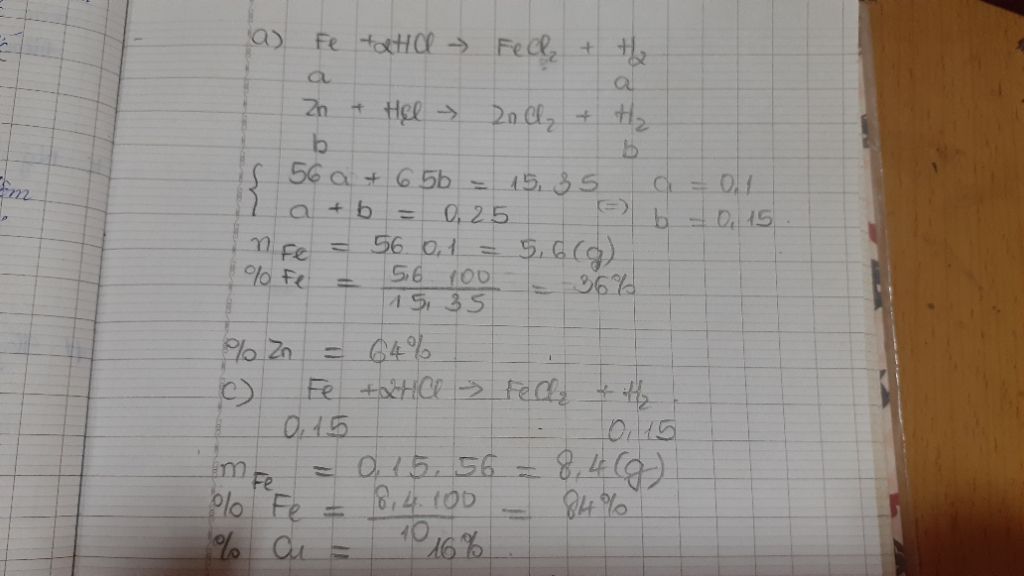 a) Fe + 2HCl → FeCl₂ + H₂
a a
Zn + HCl → ZnCl₂ + H₂
b b
{ 56a + 65b = 15,35 a = 0,1
a + b = 0,25 (=) b = 0,15.
n Fe = 56 0,1 = 5,6 (g)
% Fe = 5,6 100 / 15,35 = 36%
% Zn = 64%
c) Fe + 2HCl → FeCl₂ + H₂
0,15 0,15
m Fe = 0,15. 56 = 8,4 (g)
% Fe = 8,4.100 / 10 = 84%
% Cu = 16%